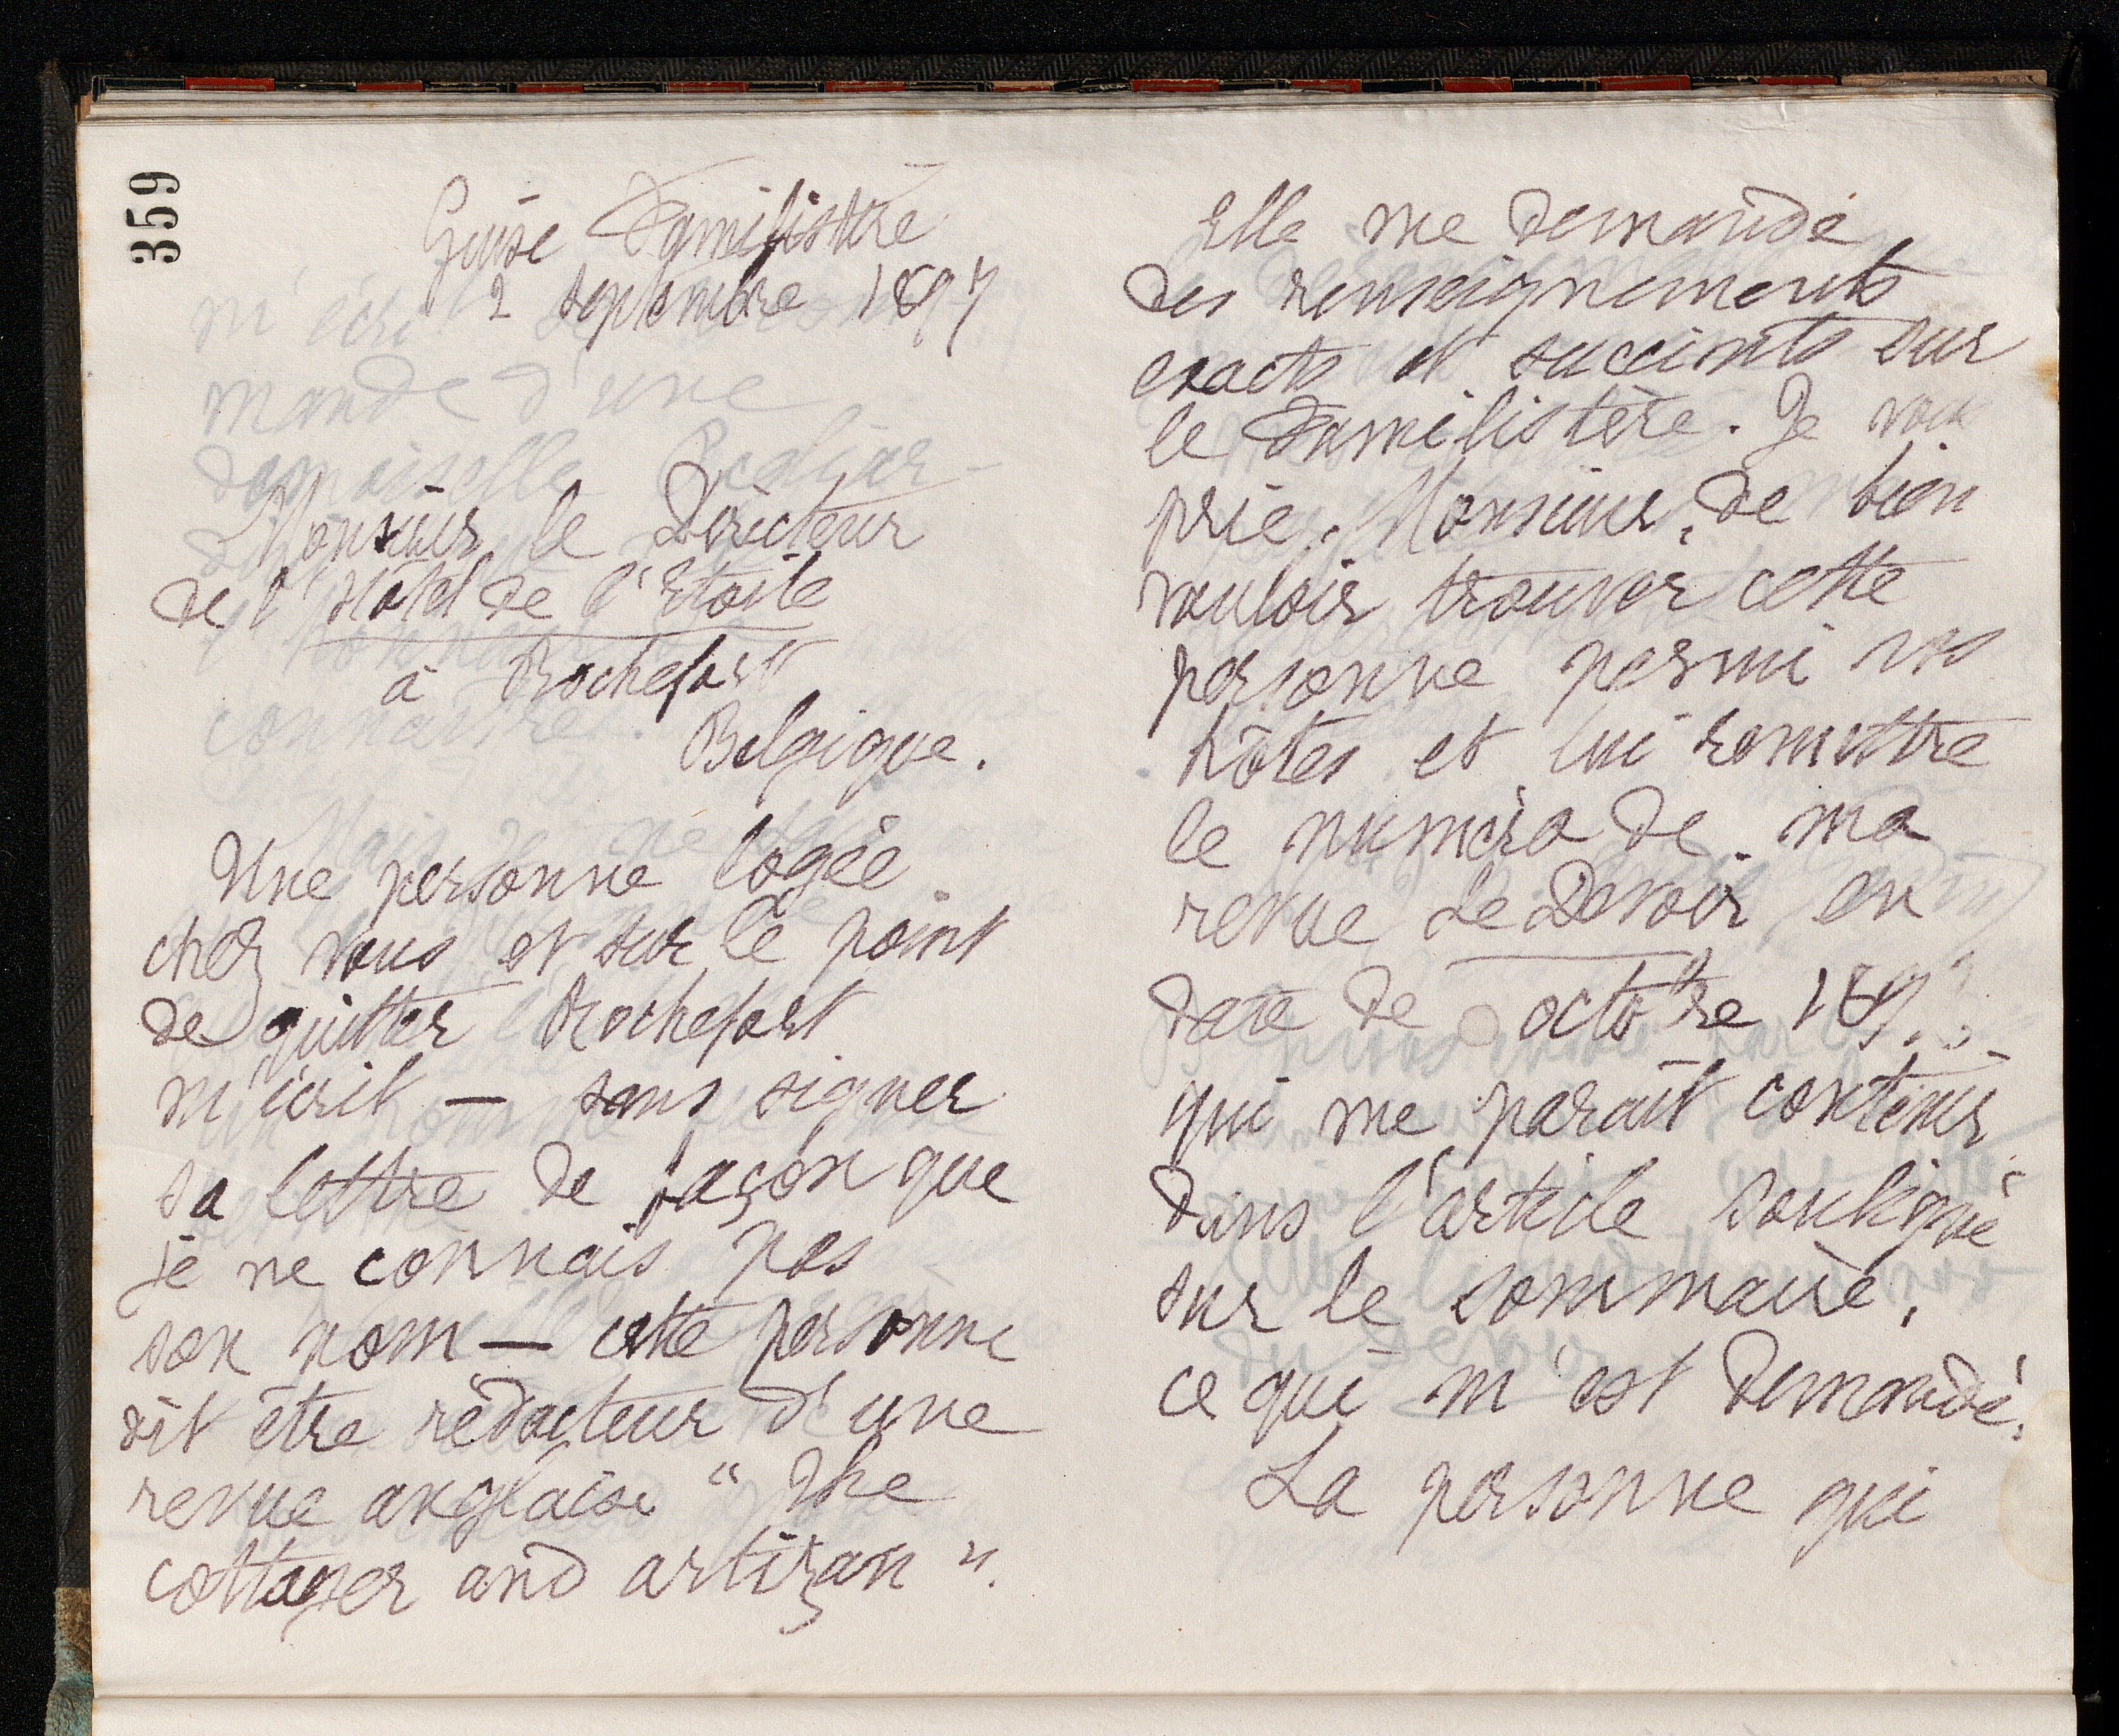 359
Guise Familistère
2 septembre 1897
Monsieur le Directeur
de l'Hôtel de l'Etoile
à Rochefort
Belgique.
Une personne logée
chez vous et sur le point
de quitter Rochefort
m'écrit — sans signer
sa lettre de façon que
je ne connais pas
son nom — cette personne
dit être rédacteur d'une
revue anglaise "The
cottager and artizan".
Elle me demande
des renseignements
exacts et succints sur
le Familistère. Je vous
prie, Monsieur, de bien
vouloir trouver cette
personne parmi vos
hôtes et lui remettre
le numéro de ma
revue Le Devoir en
date de octobre 189
qui me paraît contenir
dans l'article souligné
sur le sommaire,
ce qui m'est demandé.
La personne qui